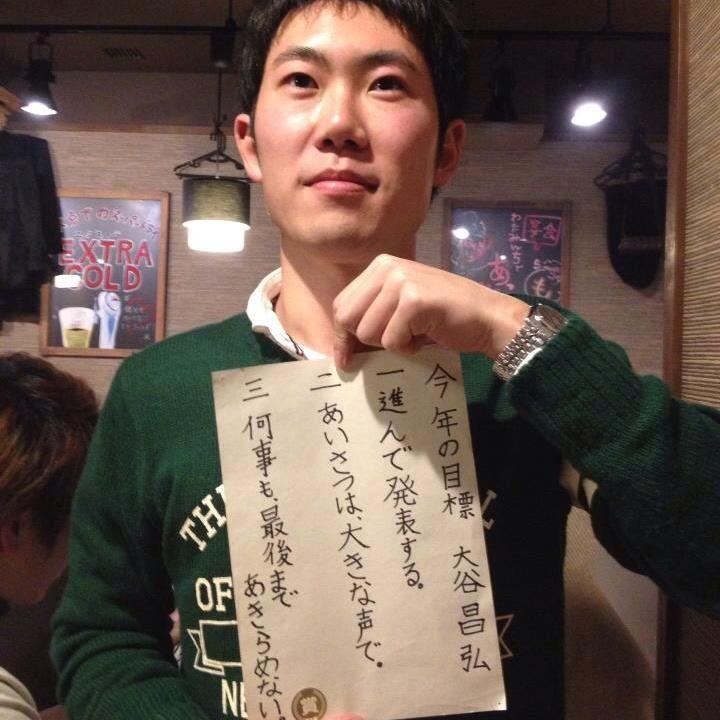 今年の目標 大谷昌弘
一 進んで発表する。
二 あいさつは、大きな声で。
三 何事も、最後まで
あきらめない。
賞
EXTRA
COLD
TH
OF
NE